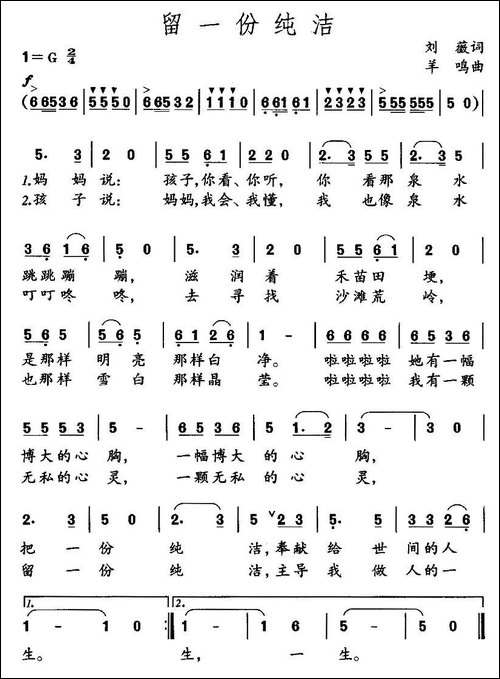 留一份纯洁
刘 薇词
1=G 2/4
羊 鸣曲
f
(66536 | 5550 | 66532 | 1110 | 66161 | 2323 | 555555 | 50) |
5. 3 | 2 0 | 5 5 5 6 1 | 2 2 0 | 2. 3 5 5 | 2. 3 5 |
1.妈 妈 说: 孩子,你看、你听, 你 看那 泉 水
2.孩 子 说: 妈妈,我会、我懂, 我 也像 泉 水
3 6 1 6 | 5 0 | 5. 3 | 2 2 | 5 5 6 1 | 2 0 |
跳跳蹦 蹦, 滋 润着 禾苗田 埂,
叮叮咚 咚, 去 寻找 沙滩荒 岭,
5 6 5 | 5 6 5 | 6 1 2 6 | 1 - | 6 6 6 6 | 6 5 3 6 |
是那样 明 亮 那样白 净。 啦啦啦啦 她有一幅
也那样 雪 白 那样晶 莹。 啦啦啦啦 我有一颗
5 5 5 3 | 5 - | 6 5 6 6 | 5 1. 2 | 3 - | 3 0 |
博大的心 胸, 一幅博大 的 心 胸,
无私的心 灵, 一颗无私 的 心 灵,
2. 3 | 5 0 | 2. 3 | 5 2 3 | 5. 5 | 3 3 2 6 |
把 一 份 纯 洁,奉献 给 世 间的人
留 一 份 纯 洁,主导 我 做 人的一
1. 2.
1 - | 1 0 :‖ 1 - | 1 6 | 5 - | 5 0 ‖
生。 生, 一 生。